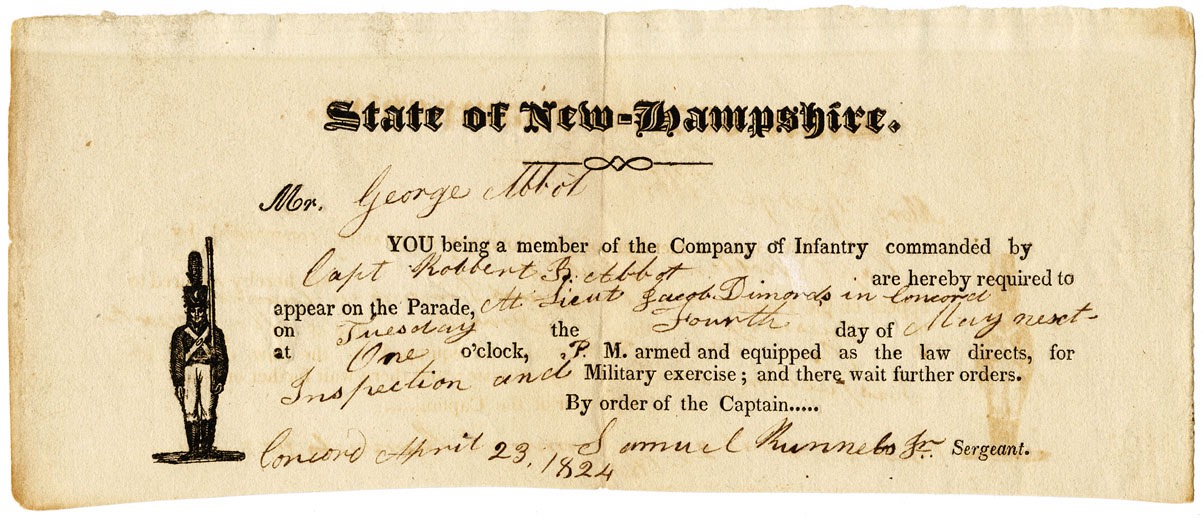 State of New-Hampshire.
Mr. George Abbot
YOU being a member of the Company of Infantry commanded by
Capt Robbert B. Abbot are hereby required to
appear on the Parade, At Lieut Jacob Dimonds in Concord
on Tuesday the Fourth day of May next
at One o'clock, P. M. armed and equipped as the law directs, for
Inspection and Military exercise; and there wait further orders.
By order of the Captain.....
Concord April 23, 1824 Samuel Runnels Jr. Sergeant.